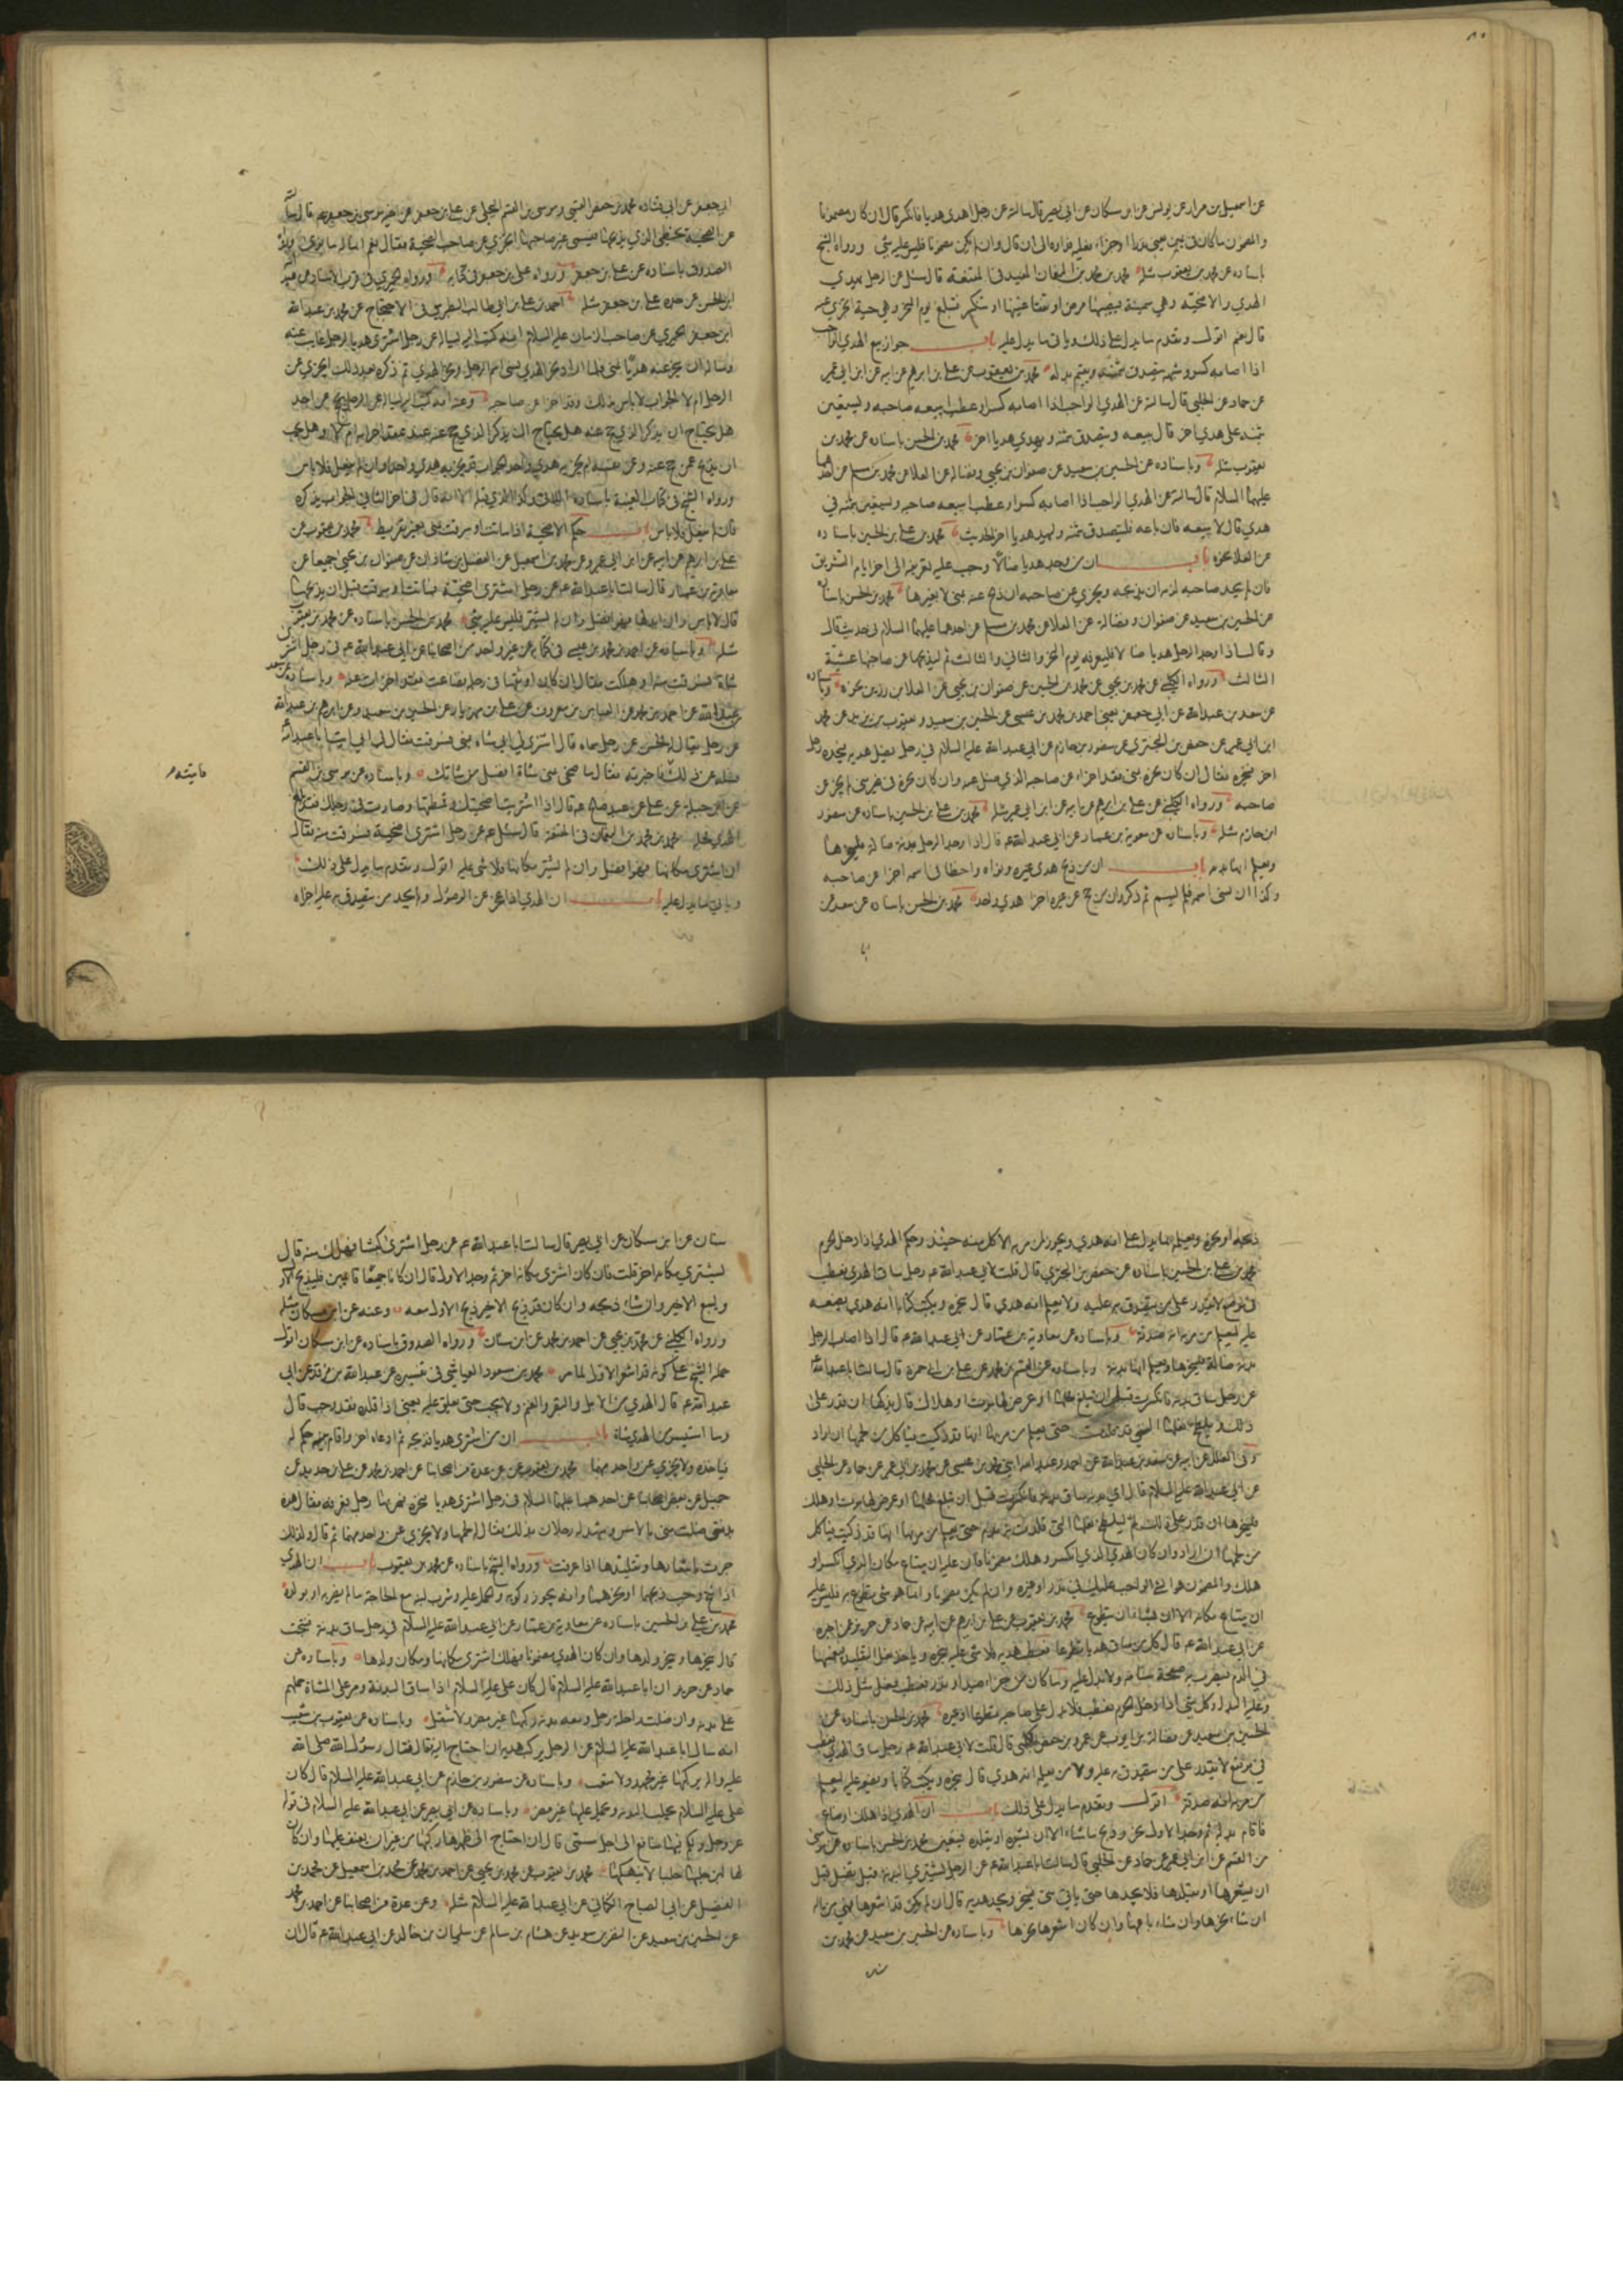 عن اسمعيل بن مرار عن يونس عن ابن مسكان عن ابي بصير قال سالته عن رجل اهدى هديا فانكسر قال ان كان مضمونا
والمضمون ما كان في يمين يعنى نذرا او جزاء فعليه فداؤه الى ان قال وان لم يكن مضمونا فليس عليه شئ ورواه الشيخ
باسناده عن محمد بن يعقوب مثله محمد بن محمد بن النعمان المفيد في المقنعة قال سئل عن الرجل يهدي
الهدي والاضحية وهي سمينة فيصيبها مرض او تفقأ عينها او تنكسر فتبلغ يوم النحر وهي حية اتجزي عنه
قال نعم اقول وتقدم ما يدل على ذلك وياتي ما يدل عليه باب جواز بيع الهدي الواجب
اذا اصابه كسر وشبهه ويتصدق بثمنه ويقيم بدله محمد بن يعقوب عن علي بن ابرهيم عن ابيه عن ابن ابي عمير
عن حماد عن الحلبي قال سالته عن الهدي الواجب اذا اصابه كسر او عطب ايبيعه صاحبه ويستعين
بثمنه على هدي اخر قال يبيعه ويتصدق بثمنه ويهدي هديا اخر محمد بن الحسن باسناده عن محمد بن
يعقوب مثله وباسناده عن الحسين بن سعيد عن صفوان بن يحيى وفضالة عن العلا عن محمد بن مسلم عن احدهما
عليهما السلام قال سالته عن الهدي الواجب اذا اصابه كسر او عطب ايبيعه صاحبه ويستعين بثمنه في
هدي قال لا يبيعه فان باعه فليتصدق بثمنه وليهد هديا اخر الحديث محمد بن علي بن الحسين باسناده
عن العلا نحوه باب ان من وجد هديا ضالا وجب عليه تعريفه الى اخر ايام التشريق
فان لم يجد صاحبه لزمه ان يذبحه ويجزي عن صاحبه ان ذبح عنه بمنى لا بغيرها محمد بن الحسن باسناده
عن الحسين بن سعيد عن صفوان وفضالة عن العلا عن محمد بن مسلم عن احدهما عليهما السلام في حديث قال
وقال اذا وجد الرجل هديا ضالا فليعرفه يوم النحر والثاني والثالث ثم ليذبحها عن صاحبها عشية
الثالث ورواه الكليني عن محمد بن يحيى عن محمد بن الحسين عن صفوان بن يحيى عن العلا بن رزين نحوه وباسناده
عن سعد بن عبدالله عن ابي جعفر يعنى احمد بن محمد بن عيسى عن الحسين بن سعيد ويعقوب بن يزيد عن محمد
ابن ابي عمير عن حفص بن البختري عن منصور بن حازم عن ابي عبد الله عليه السلام في رجل يضل هديه فيجده رجل
اخر فينحره فقال ان كان نحره بمنى فقد اجزاء عن صاحبه الذي ضل عنه وان كان نحره في غير منى لم يجز عن
صاحبه ورواه الكليني عن علي بن ابرهيم عن ابيه عن ابن ابي عمير مثله محمد بن علي بن الحسين باسناده عن منصور
ابن حازم مثله وباسناده عن معوية بن عمار عن ابي عبد الله ع قال اذا وجد الرجل بدنة ضالة فلينحرها
ويعلم انها بدنة باب ان من ذبح هدي غيره ونواه واخطا في اسمه اجزا عن صاحبه
وكذا ان نسى اسمه فلم يسم ثم ذكر وان من حج عن غيره اجزا هدي واحد محمد بن الحسن باسناده عن سعد عن
ابي جعفر عن ابي قتادة محمد بن حفص القمي وموسى بن القسم البجلي عن علي بن جعفر عن اخيه موسى بن جعفر ع قال سالته
عن الضحية يخطئ الذي يذبحها فيسمى غير صاحبها اتجزي عن صاحب الضحية فقال نعم انما له ما نوى ورواه
الصدوق باسناده عن علي بن جعفر ورواه علي بن جعفر في كتابه ورواه الحميري في قرب الاسناد عن عبد الله
ابن الحسن عن جده علي بن جعفر مثله احمد بن علي بن ابي طالب الطبرسي في الاحتجاج عن محمد بن عبد الله
ابن جعفر الحميري عن صاحب الزمان عليه السلام انه كتب اليه يساله عن رجل اشترى هديا لرجل غايب عنه
وساله ان ينحر عنه هديا بمنى فلما اراد نحر الهدي نسى اسم الرجل ونحر الهدي ثم ذكره بعد ذلك ايجزي عن
الرجل ام لا الجواب لا باس بذلك وقد اجزا عن صاحبه وعنه انه كتب اليه يساله عن الرجل يحج عن احد
هل يحتاج ان يذكر الذي حج عنه عند عقد احرامه ام لا وهل يجب
ان يذبح عمن حج عنه وعن نفسه ام يجزيه هدي واحد الجواب قد يجزيه هدي واحد وان لم يفعل فلا باس
ورواه الشيخ في كتاب الغيبة باسناده
فان لم يفعل فلا باس باب حكم الاضحية اذا ماتت او سرقت بمنى بغير تفريط محمد بن يعقوب عن
علي بن ابرهيم عن ابيه عن ابن ابي عمير وعن محمد بن اسمعيل عن الفضل بن شاذان عن صفوان بن يحيى جميعا عن
معاوية بن عمار قال سالت ابا عبد الله ع عن رجل اشترى اضحية فماتت او سرقت قبل ان يذبحها
قال لا باس وان ابدلها فهو افضل وان لم يشتر فليس عليه شئ محمد بن الحسن باسناده عن محمد بن يعقوب
مثله وباسناده عن احمد بن محمد بن عيسى في كتابه عن غير واحد من اصحابنا عن ابي عبد الله ع في رجل اشترى
شاة فسرقت منه او هلكت فقال ان كان اوثقها في رحله فضاعت فقد اجزات عنه وباسناده عن سعد
بن عبد الله عن احمد بن محمد عن العباس بن معروف عن علي بن مهزيار عن الحسين بن سعيد وعن ابرهيم بن عبد الله
عن رجل يقال له الحسن عن رجل سماه قال اشترى لي ابي شاة بمنى فسرقت فقال لي ابي ائت ابا عبد الله
فسله عن ذلك فاخبرته فقال ما ضحى بمنى شاة افضل من شاتك وباسناده عن موسى بن القسم
عن ابن جبلة عن علي عن عبد صالح ع قال اذا اشتريت اضحيتك وقمطتها وصارت في رحلك فقد بلغ
الهدي محله محمد بن محمد بن النعمان في المقنعة قال سئل ع عن رجل اشترى اضحية فسرقت منه فقال
ان اشترى مكانها فهو افضل وان لم يشتر مكانها فلا شئ عليه اقول وتقدم ما يدل على ذلك
وياتي ما يدل عليه باب ان الهدي اذا عجز عن الوصول ولم يجد من يتصدق به عليه اجزاه
ذبحه او نحره ويعلمه بما يدل على انه هدي ويجوز لمن مر به الاكل منه حينئذ وحكم الهدي اذا دخل الحرم
محمد بن علي بن الحسين باسناده عن حفص بن البختري قال قلت لابي عبد الله ع رجل ساق الهدي فعطب
في موضع لا يقدر على من يتصدق به عليه ولا يعلم انه هدي قال ينحره ويكتب كتابا انه هدي يضعه
عليه ليعلم من مر به انه صدقة وباسناده عن معاوية بن عمار عن ابي عبد الله ع قال اذا اصاب الرجل
بدنة ضالة فلينحرها ويعلم انها بدنة وباسناده عن القسم بن محمد عن علي بن ابي حمزة قال سالت ابا عبد الله
عن رجل ساق بدنة فانكسرت قبل ان تبلغ محلها او عرض لها موت او هلاك قال يذكيها ان قدر على
ذلك ويلطخ نعلها التي قلدت حتى يعلم من مر بها انها قد ذكيت فياكل من لحمها ان اراد
وفي العلل عن ابيه عن سعد بن عبد الله عن احمد وعبد الله ابني محمد بن عيسى عن محمد بن ابي عمير عن حماد عن الحلبي
عن ابي عبد الله عليه السلام قال اي رجل ساق بدنة فانكسرت قبل ان تبلغ محلها او عرض لها موت او هلاك
فلينحرها ان قدر على ذلك ثم ليلطخ نعلها التي قلدت به بدم حتى يعلم من مر بها انها قد ذكيت فياكل
من لحمها ان اراد وان كان الهدي الذي انكسر وهلك مضمونا فان عليه ان يبتاع مكان الذي انكسر او
هلك والمضمون هو الشئ الواجب عليك في نذر او غيره وان لم يكن مضمونا وانما هو شئ تطوع به فليس عليه
ان يبتاع مكانه الا ان يشاء ان يتطوع محمد بن يعقوب عن علي بن ابرهيم عن ابيه عن حماد عن حريز عمن اخبره
عن ابي عبد الله ع قال كل من ساق هديا تطوعا فعطب هديه فلا شئ عليه ينحره وياخذ نعل التقليد فيغمسها
في الدم فيضرب به صفحة سنامه ولا بدل عليه وما كان من جزاء صيد او نذر فعطب فعل مثل ذلك
وعليه البدل وكل شئ اذا دخل الحرم فعطب فلا بدل على صاحبه تطوعا او غيره محمد بن الحسن باسناده عن
الحسين بن سعيد عن فضالة بن ايوب عن عمر بن حفص الكلبي قال قلت لابي عبد الله ع رجل ساق الهدي فعطب
في موضع لا يقدر على من يتصدق به عليه ولا من يعلمه انه هدي قال ينحره ويكتب كتابا ويضعه عليه ليعلم
من مر به انه صدقة اقول وتقدم ما يدل على ذلك باب ان الهدي اذا هلك او ضاع
فاقام بدله ثم وجد الاول نحر وذبح ما شاء الا ان يشعره او يقلده فيتعين محمد بن الحسن باسناده عن موسى
بن القسم عن ابن ابي عمير عن حماد عن الحلبي قال سالت ابا عبد الله ع عن الرجل يشتري البدنة فتضل قبل
ان يشعرها او يقلدها فلا يجدها حتى ياتي منى فينحر ويجد هديه قال ان لم يكن قد اشعرها فهي من ماله
ان شاء نحرها وان شاء باعها وان كان اشعرها نحرها وباسناده عن الحسين بن سعيد عن محمد بن
سنان عن ابن مسكان عن ابي بصير قال سالت ابا عبد الله ع عن رجل اشترى كبشا فهلك منه قال
يشتري مكانه اخر قلت فان كان اشترى مكانه اخر ثم وجد الاول قال ان كانا جميعا قائمين فليذبح الاول
وليبع الاخير وان شاء ذبحه وان كان قد ذبح الاخير ذبح الاول معه وعنه عن ابن مسكان مثله
ورواه الكليني عن محمد بن يحيى عن احمد بن محمد عن ابن سنان ورواه الصدوق باسناده عن ابن مسكان اقول
حمله الشيخ على كونه قد اشعر الاول لما مر محمد بن مسعود العياشي في تفسيره عن عبد الله بن فرقد عن ابي
عبد الله ع قال الهدي من الابل والبقر والغنم ولا يجب حتى يعلق عليه يعنى اذا قلده فقد وجب قال
وما استيسر من الهدي شاة باب ان من اشترى هديا فذبحه ثم ادعاه اخر واقام بينة حكم له
باخذه ولا يجزي عن واحد منهما محمد بن يعقوب عن عدة من اصحابنا عن احمد بن محمد عن علي بن حديد عن
جميل عن بعض اصحابنا عن احدهما عليهما السلام في رجل اشترى هديا فنحره فمر بها رجل يعرفه فقال هذه
بدنتي ضلت مني بالامس وشهد له رجلان بذلك فقال له لحمها ولا يجزي عن واحد منهما ثم قال ولذلك
جرت باشعارها وتقليدها اذا عرفت ورواه الشيخ باسناده عن محمد بن يعقوب باب ان الهدي
اذا نتج وجب ذبحهما او نحرهما وانه يجوز ركوبه والحمل عليه وشرب لبنه مع الحاجة ما لم يضر به او بولده
محمد بن علي بن الحسين باسناده عن معاوية بن عمار عن ابي عبد الله عليه السلام في رجل ساق بدنة فنتجت
قال ينحرها وينحر ولدها وان كان الهدي مضمونا فهلك اشترى مكانها ومكان ولدها وباسناده عن
حماد عن حريز ان ابا عبد الله عليه السلام قال كان علي عليه السلام اذا ساق البدنة ومر على المشاة حملهم
على بدنه وان ضلت راحلة رجل ومعه بدنة ركبها غير مضر ولا مثقل وباسناده عن يعقوب بن شعيب
انه سال ابا عبد الله عليه السلام عن الرجل يركب هديه ان احتاج اليه فقال قال رسول الله صلى الله
عليه واله يركبها غير مجهد ولا متعب وباسناده عن منصور بن حازم عن ابي عبد الله عليه السلام قال كان
علي عليه السلام يحلب البدنة ويحمل عليها غير مضر وباسناده عن ابي بصير عن ابي عبد الله عليه السلام في قول
عز وجل لكم فيها منافع الى اجل مسمى قال ان احتاج الى ظهرها ركبها من غير ان يعنف عليها وان كان
لها لبن حلبها حلبا لا ينهكها محمد بن يعقوب عن محمد بن يحيى عن احمد بن محمد عن محمد بن اسمعيل عن محمد بن
الفضيل عن ابي الصباح الكناني عن ابي عبد الله عليه السلام مثله وعن عدة من اصحابنا عن احمد بن محمد
عن الحسين بن سعيد عن النضر بن سويد عن هشام بن سالم عن سليمان بن خالد عن ابي عبد الله ع قال ان